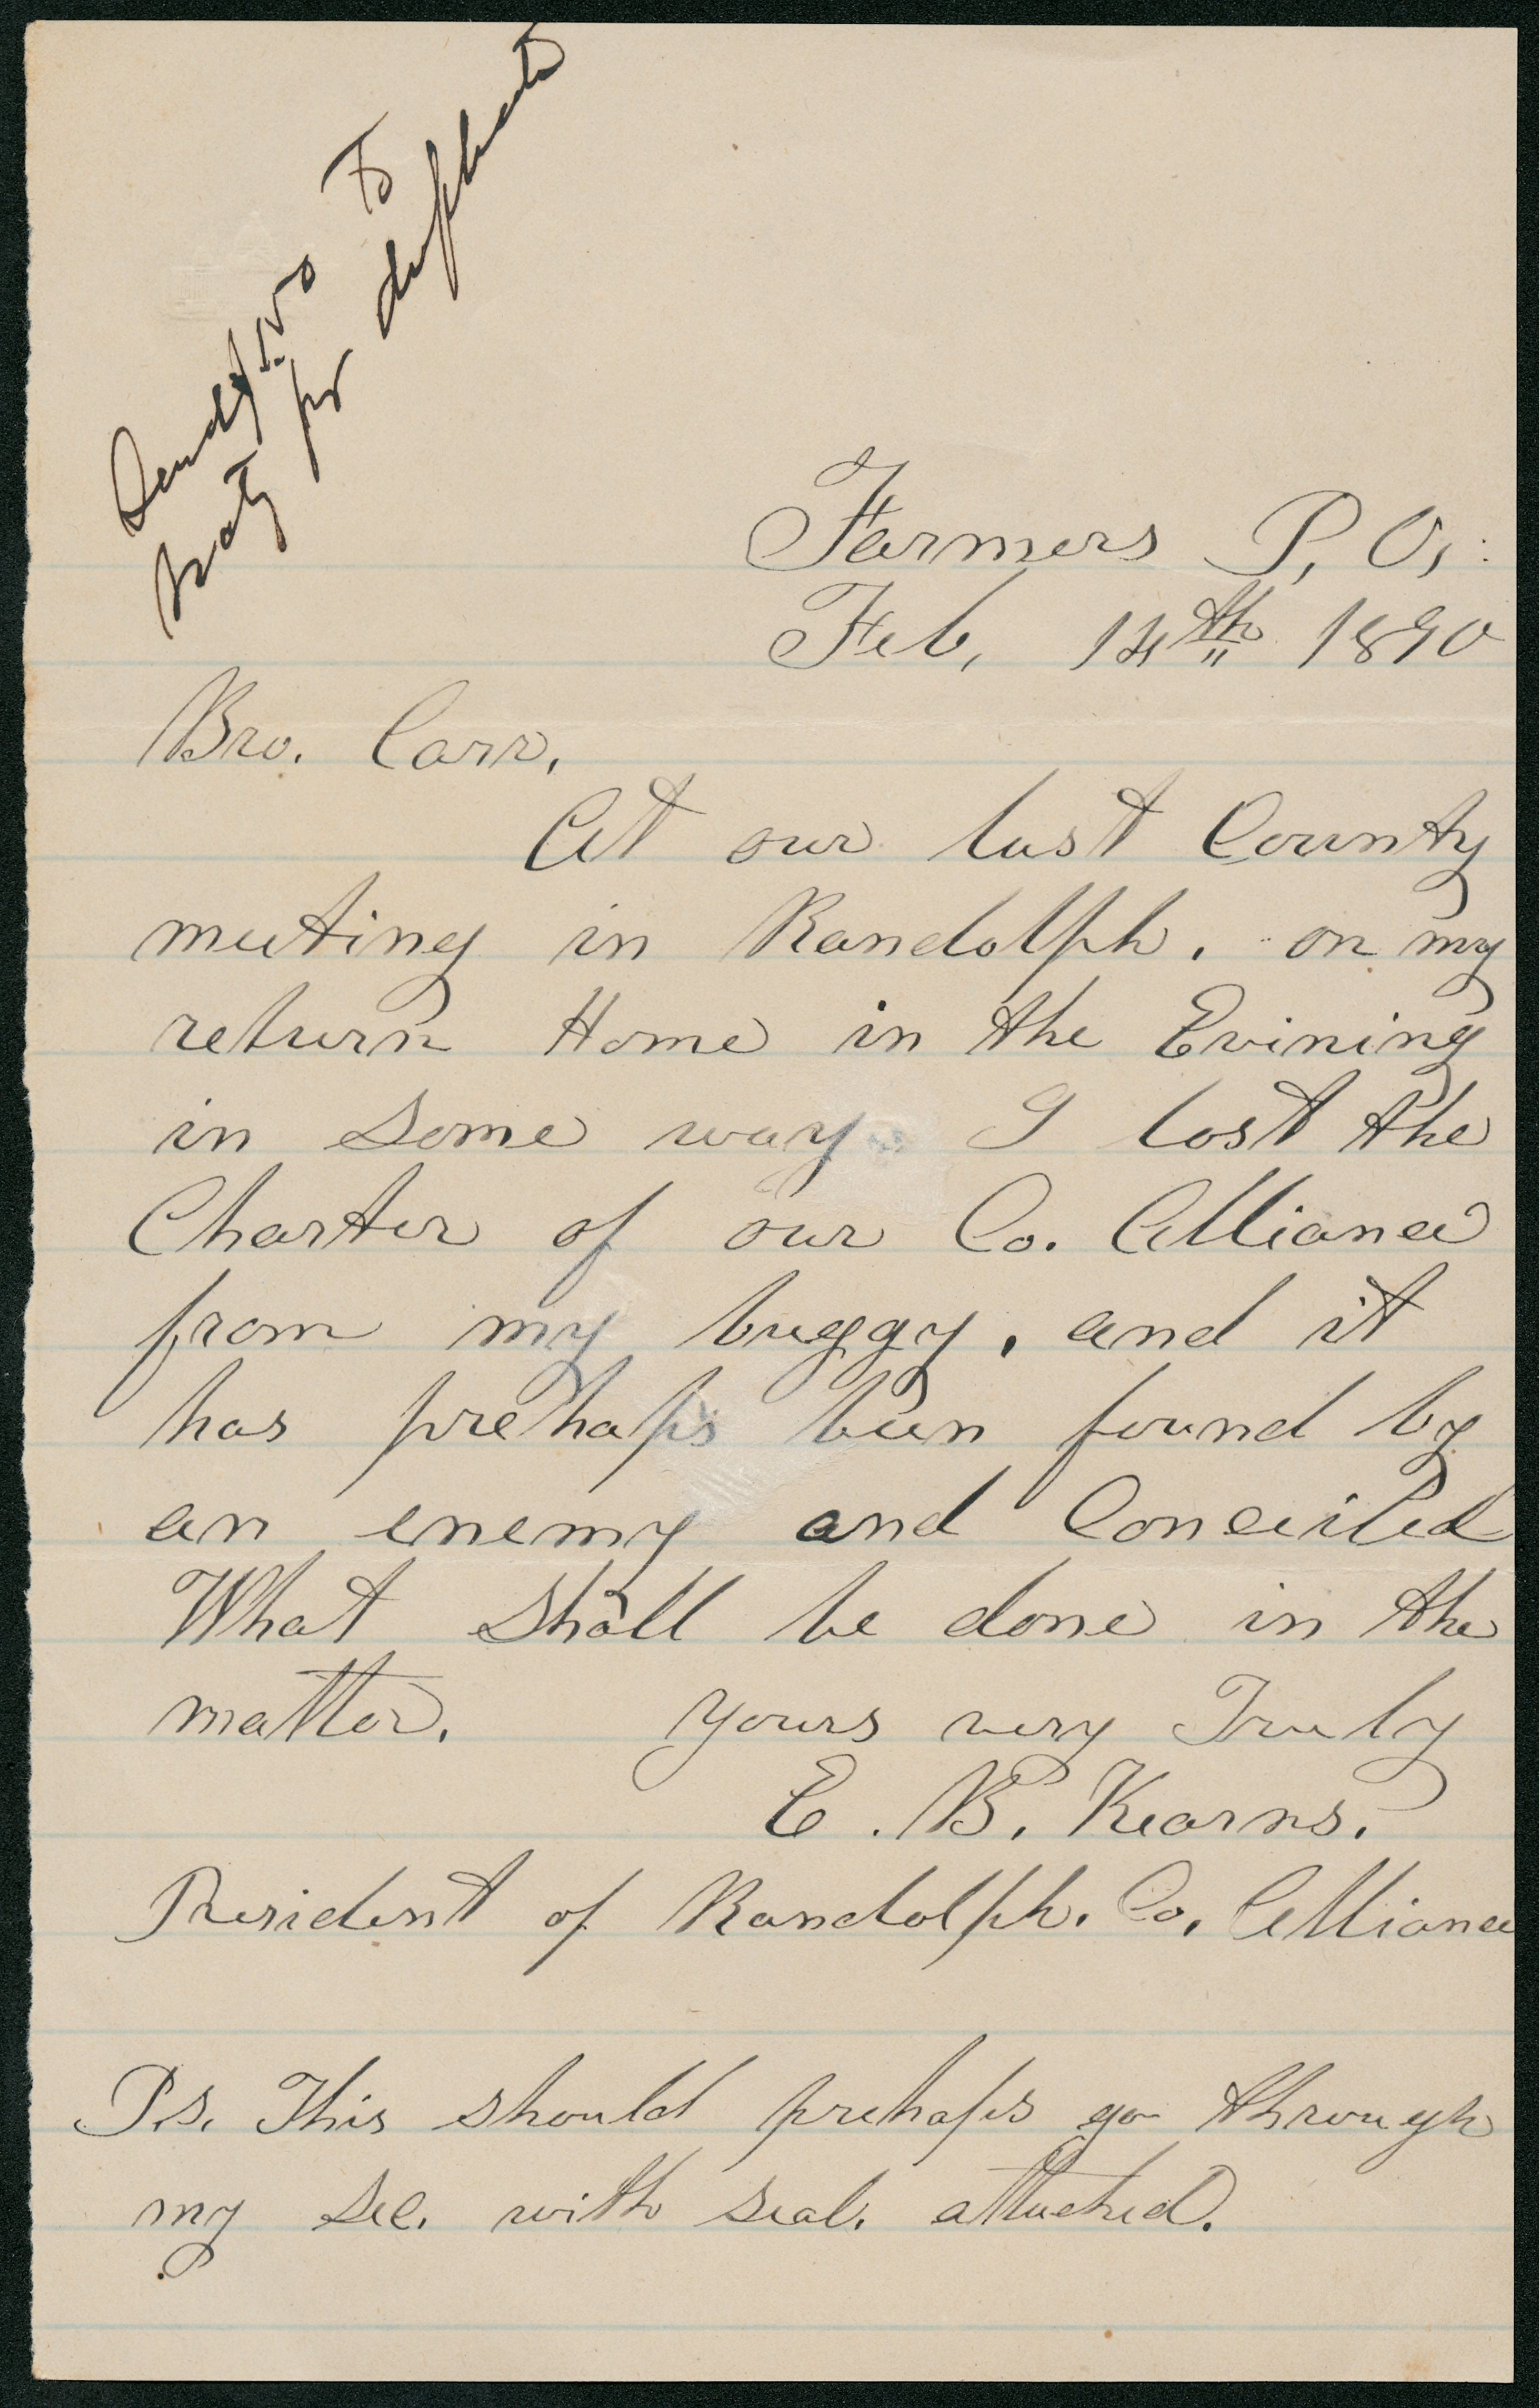 Send $1.50 to
for duplicate
Farmers P. O.:
Feb, 14th 1890
Bro. Carr,
At our last County
meeting in Randolph. on my
return Home in the Evining
in some way I lost the
Charter of our Co. Alliance
from my buggy, and it
has prehaps been found by
an enemy and Conceiled
What shall be done in the
matter. Yours very Truly
E. B. Kearns.
President of Randolph. Co. Alliance
P.s. This should prehaps go through
my Sec. with seal. attached.